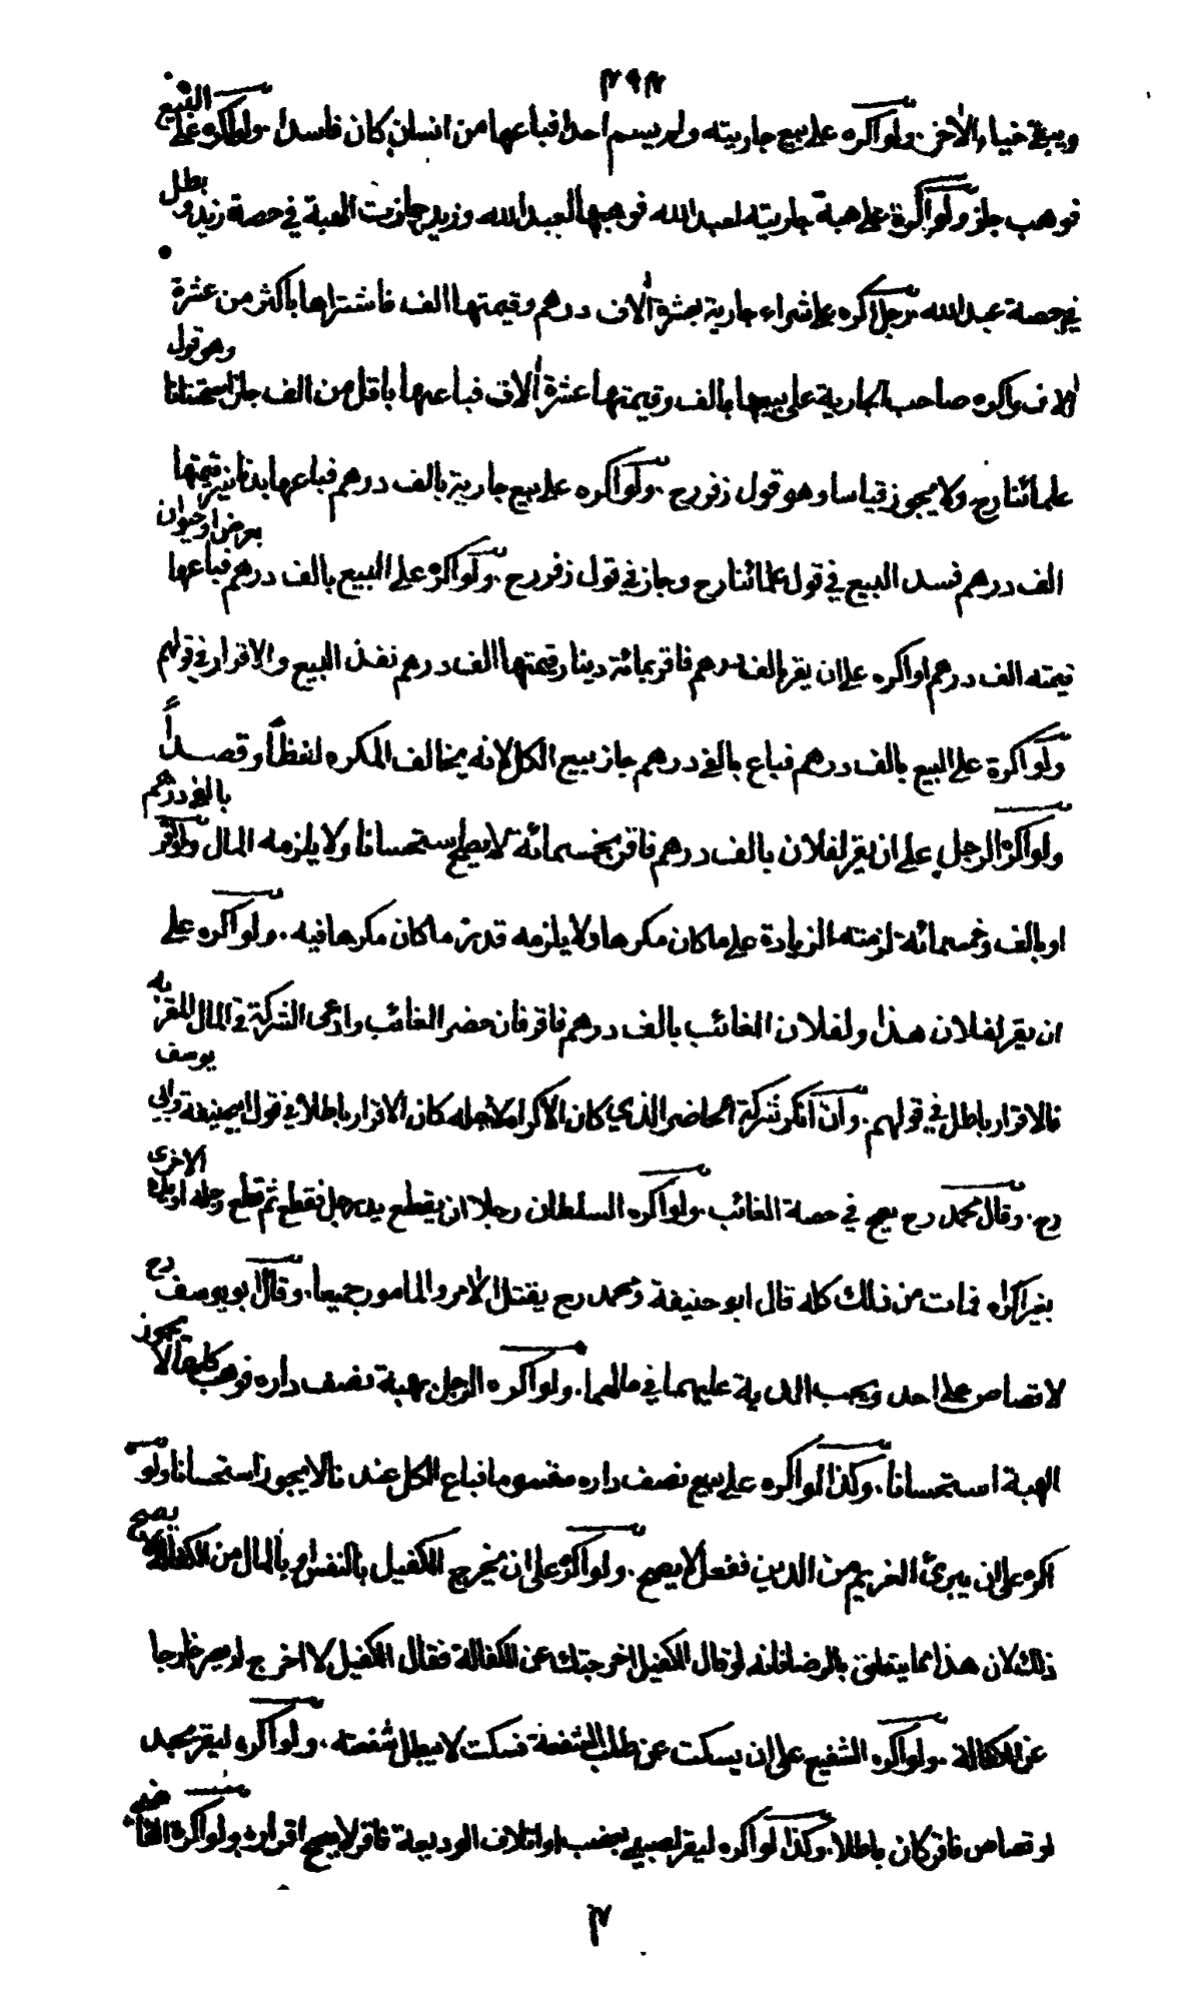 ٢٩٢
ويبقى خيار الآخر. ولو اكره على بيع جاريته ولم يسم احدا فباعها من انسان كان فاسدا. ولو اكره على البيع
فوهب جاز ولو اكره على هبة جاريته لعبد الله فوهبها لعبد الله وزيد جازت الهبة في حصة زيد وبطل
في حصة عبد الله. رجل اكره على شراء جارية بعشرة آلاف درهم وقيمتها الف فاشتراها باكثر من عشرة
آلاف واكره صاحب الجارية على بيعها بالف وقيمتها عشرة آلاف فباعها باقل من الف جاز استحسانا وهو قول
علمائنا رح ولا يجوز قياسا وهو قول زفر رح. ولو اكره على بيع جارية بالف درهم فباعها بدنانير قيمتها
الف درهم فسد البيع في قول علمائنا رح وجاز في قول زفر رح. ولو اكره على البيع بالف درهم فباعها بعرض او حيوان
قيمته الف درهم او اكره على ان يقر بالف درهم فاقر بمائة دينار قيمتها الف درهم نفذ البيع والاقرار في قولهم
ولو اكره على البيع بالف درهم فباع بالفي درهم جاز بيع الكل لانه يخالف المكره لفظاً وقصداً
ولو اكره الرجل على ان يقر لفلان بالف درهم فاقر بخمسمائة لا يصح استحسانا ولا يلزمه المال ولو اقر بالفي درهم
او بالف وخمسمائة لزمته الزيادة على ما كان مكرها ولا يلزمه قدر ما كان مكرها فيه. ولو اكره على
ان يقر لفلان هذا ولفلان الغائب بالف درهم فاقر فان حضر الغائب وادعى الشركة في المال المقر به
فالاقرار باطل في قولهم. وان انكر شركة الحاضر الذي كان الاكراه لاجله كان الاقرار باطلا في قول ابي حنيفة وابي يوسف
رح. وقال محمد رح يصح في حصة الغائب. ولو اكره السلطان رجلا ان يقطع يد رجل فقطع ثم قطع رجله او يده الاخرى
بغير اكراه فمات من ذلك كله قال ابو حنيفة ومحمد رح يقتل الآمر والمامور جميعا. وقال ابو يوسف رح
لا قصاص على احد ويجب الدية عليهما في مالهما. ولو اكره الرجل بهبة نصف داره فوهب كلها قالا يجوز
الهبة استحسانا. وكذا لو اكره على بيع نصف داره مقسوما فباع الكل عندنا لا يجوز استحسانا ولو
اكره على ان يبرئ الغريم من الدين ففعل لا يصح. ولو اكره على ان يخرج الكفيل بالنفس او بالمال من الكفالة لا يصح
ذلك لان هذا مما يتعلق بالرضا فانه لو قال الكفيل اخرجتك عن الكفالة فقال الكفيل لا اخرج لم يصر خارجا
عن الكفالة. ولو اكره الشفيع على ان يسكت عن طلب الشفعة فسكت لا يبطل شفعته. ولو اكره ليقر بحد
او قصاص فاقر كان باطلا. وكذا لو اكره ليقر لصبي بغصب او اتلاف الوديعة فاقر لا يصح اقراره ولو اكره القاضي